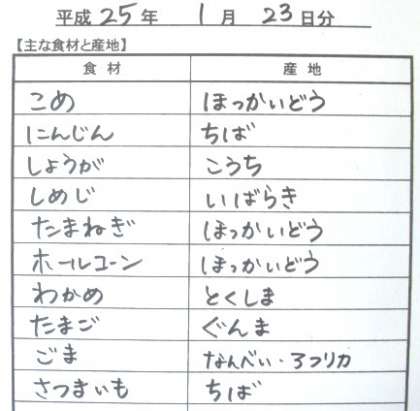 平成25年 1月 23日分
【主な食材と産地】
食材 産地
こめ ほっかいどう
にんじん ちば
しょうが こうち
しめじ いばらき
たまねぎ ほっかいどう
ホールコーン ほっかいどう
わかめ とくしま
たまご ぐんま
ごま なんべい・アフリカ
さつまいも ちば